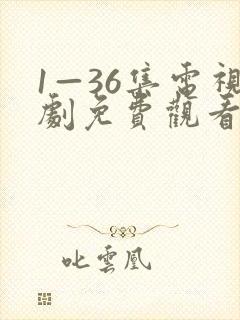 1—36集電視
劇免費觀看
叱雲凰